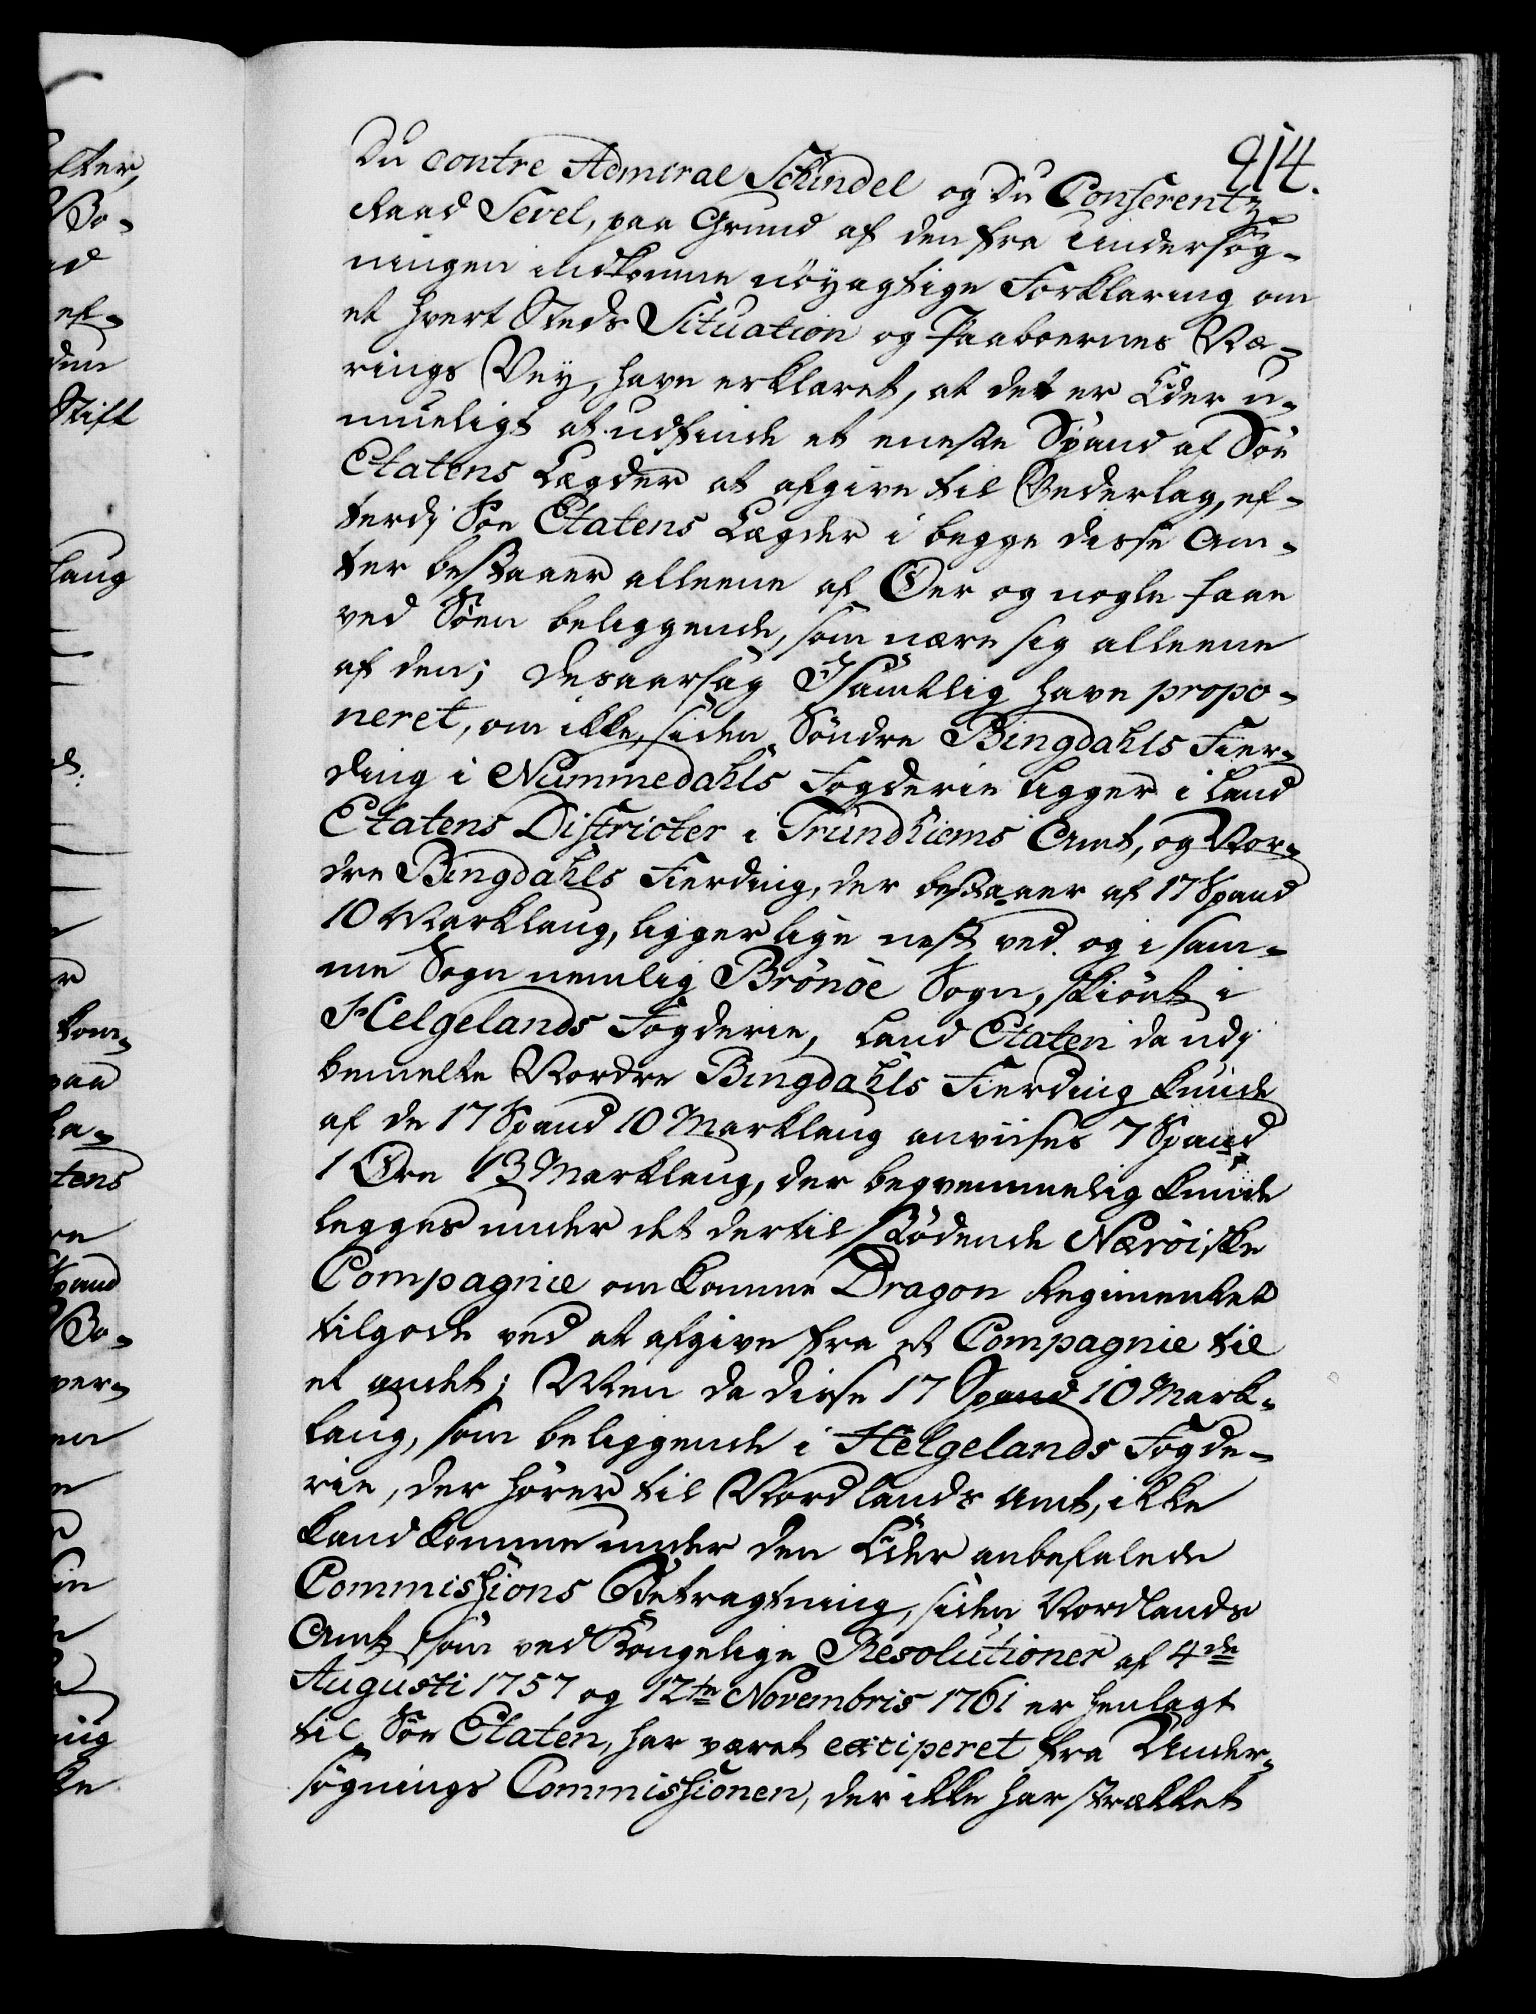 914.
Du Contre Admiral Schindel og Du Conferentz
Raad Sevel, paa Grund af den fra Undersøg-
ningen indkomne nöyagtige Forklaring om
et hvert Steds Situation og Paaboernes Næ-
rings Vey, have erklæret, at det er Eder u-
mueligt at udfinde et eneste Spand af Søe
Etatens Lægder at afgive til Vederlag, ef-
terdj Søe Etatens Lægder i begge disse Am-
ter bestaaer alleene af Øer og nogle faae
ved Søen beliggende, som nære sig alleene
af den; desaarsag I samtlig have propo-
neret, om ikke, siden Søndre Bingdahls Fier-
ding i Nummedahls Fogderie ligger i Land
Etatens Districter i Trundhiems Amt, og Nor-
dre Bingdahls Fierding, der bestaaer af 17 Spand
10 Marklaug, ligger lige nest ved og i sam-
me Sogn nemlig Brönöe Sogn, skiönt i
Helgelands Fogderie, Land Etaten da udj
bemelte Nordre Bingdahls Fierding kunde
af de 17 Spand 10 Marklaug anviises 7 Spand
1 Øre 13 Marklaug, der beqvemmelig kunde
legges under det dertil stödende Næröiske
Compagnie om komme Dragon Regimentet
tilgode ved at afgive fra et Compagnie til
et andet; Men da disse 17 Spand 10 Mark-
laug, som beliggende i Helgelands Fogde-
rie, der hører til Nordlands Amt, ikke
kand komme under den Eder anbefalede
Commissions Betragtning, siden Nordlands
Amt som ved Kongelige Resolutioner af 4de
Augusti 1757 og 12te Novembris 1761 er henlagt
til Søe Etaten, har været exciperet fra Under-
søgnings Commissionen, der ikke har strækket